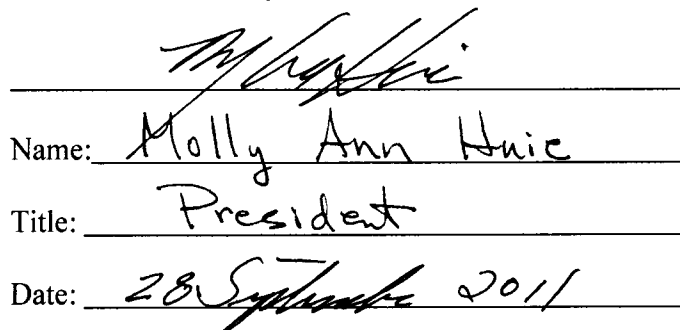 Name: Molly Ann Huie
Title: President
Date: 28 September 2011